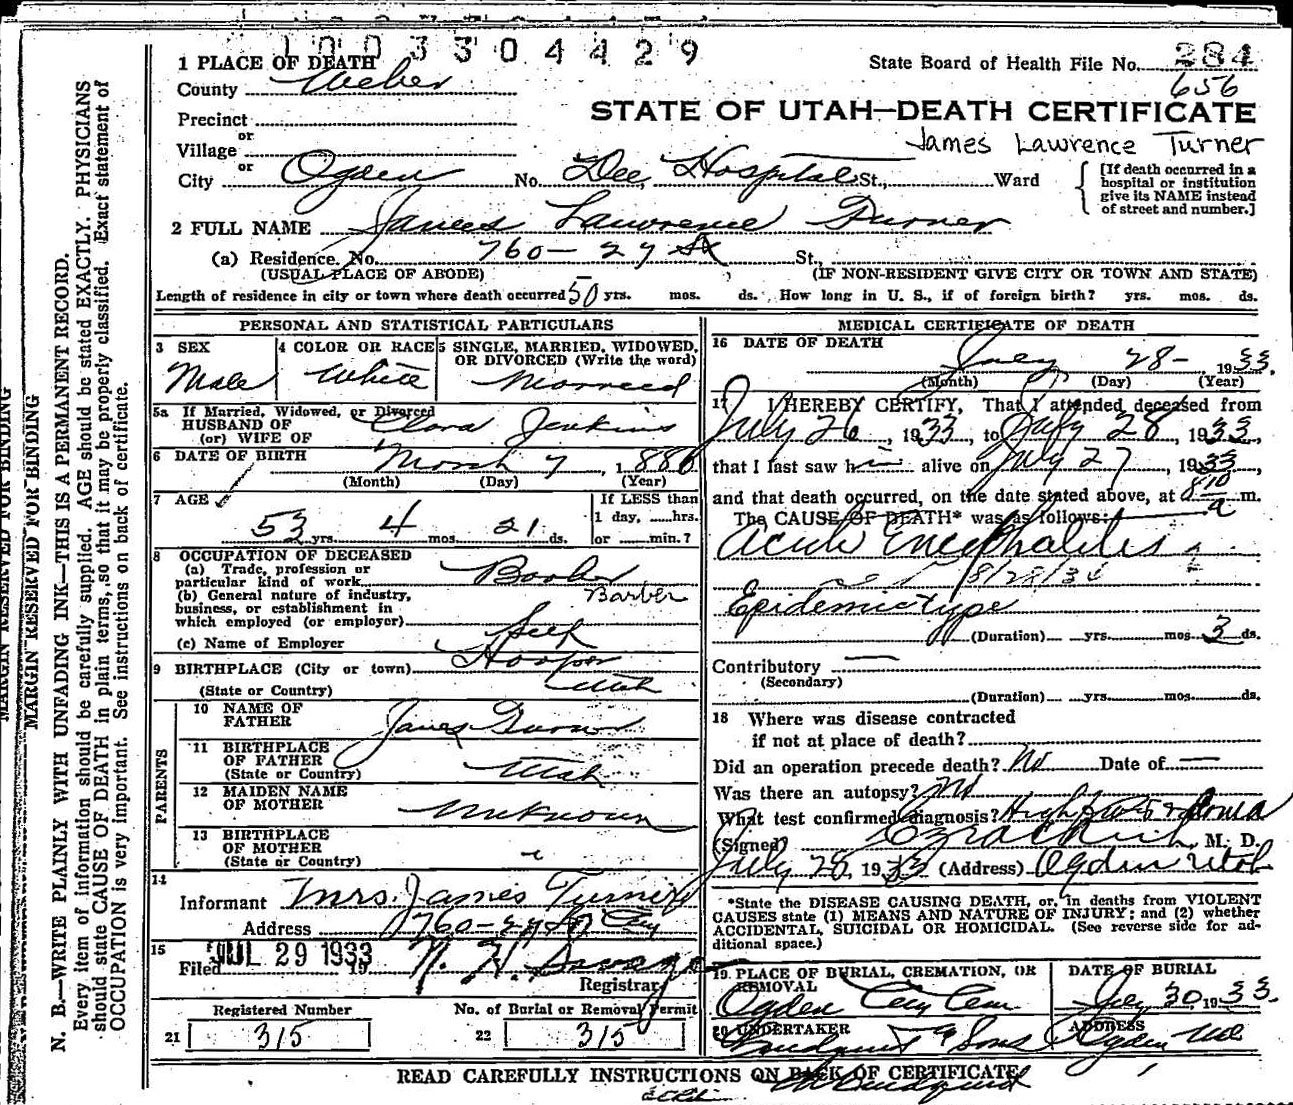 1003304429
1 PLACE OF DEATH
State Board of Health File No. 284
County Weber
656
STATE OF UTAH—DEATH CERTIFICATE
Precinct
or
Village
James Lawrence Turner
or
City Ogden No. Dee Hospital St., Ward
[If death occurred in a
hospital or institution
give its NAME instead
of street and number.]
2 FULL NAME James Lawrence Turner
(a) Residence. No. 760 - 27 St St.,
(USUAL PLACE OF ABODE) (IF NON-RESIDENT GIVE CITY OR TOWN AND STATE)
Length of residence in city or town where death occurred 50 yrs. mos. ds. How long in U. S., if of foreign birth? yrs. mos. ds.
PERSONAL AND STATISTICAL PARTICULARS
3 SEX
Male
4 COLOR OR RACE
White
5 SINGLE, MARRIED, WIDOWED,
OR DIVORCED (Write the word)
Married
5a If Married, Widowed, or Divorced
HUSBAND OF
(or) WIFE OF
Clara Jenkins
6 DATE OF BIRTH March 7, 1880
(Month) (Day) (Year)
7 AGE
53 yrs. 4 mos. 21 ds.
If LESS than
1 day, hrs.
or min.?
8 OCCUPATION OF DECEASED
(a) Trade, profession or
particular kind of work Barber
(b) General nature of industry,
business, or establishment in
which employed (or employer)
Barber
(c) Name of Employer Self
9 BIRTHPLACE (City or town) Hooper
(State or Country) Utah
PARENTS
10 NAME OF
FATHER James Turner
11 BIRTHPLACE
OF FATHER
(State or Country) Utah
12 MAIDEN NAME
OF MOTHER Unknown
13 BIRTHPLACE
OF MOTHER
(State or Country)
14
Informant Mrs. James Turner
Address 760-27 St City
15
Filed JUL 29 1933 19
Registrar
Registered Number
21 315
No. of Burial or Removal Permit
22 315
MEDICAL CERTIFICATE OF DEATH
16 DATE OF DEATH
July 28 - 1933.
(Month) (Day) (Year)
17 I HEREBY CERTIFY, That I attended deceased from
July 26, 1933, to July 28, 1933,
that I last saw him alive on July 27, 1933,
and that death occurred, on the date stated above, at 8 10 a m.
The CAUSE OF DEATH* was as follows:
Acute Encephalitis
Epidemic type
(Duration) yrs. mos. 3 ds.
Contributory —
(Secondary)
(Duration) yrs. mos. ds.
18 Where was disease contracted
if not at place of death?
Did an operation precede death? No Date of —
Was there an autopsy? No
What test confirmed diagnosis?
(Signed) M. D.
July 28, 1933 (Address) Ogden Utah
*State the DISEASE CAUSING DEATH, or, in deaths from VIOLENT
CAUSES state (1) MEANS AND NATURE OF INJURY; and (2) whether
ACCIDENTAL, SUICIDAL OR HOMICIDAL. (See reverse side for ad-
ditional space.)
19. PLACE OF BURIAL, CREMATION, OR
REMOVAL
Ogden City Cem
DATE OF BURIAL
July 30, 1933.
20 UNDERTAKER
Lindquist & Sons
ADDRESS
Ogden Utah
READ CAREFULLY INSTRUCTIONS ON BACK OF CERTIFICATE
MARGIN RESERVED FOR BINDING
MARGIN RESERVED FOR BINDING
N. B.—WRITE PLAINLY WITH UNFADING INK—THIS IS A PERMANENT RECORD.
Every item of information should be carefully supplied. AGE should be stated EXACTLY. PHYSICIANS
should state CAUSE OF DEATH in plain terms, so that it may be properly classified. Exact statement of
OCCUPATION is very important. See instructions on back of certificate.